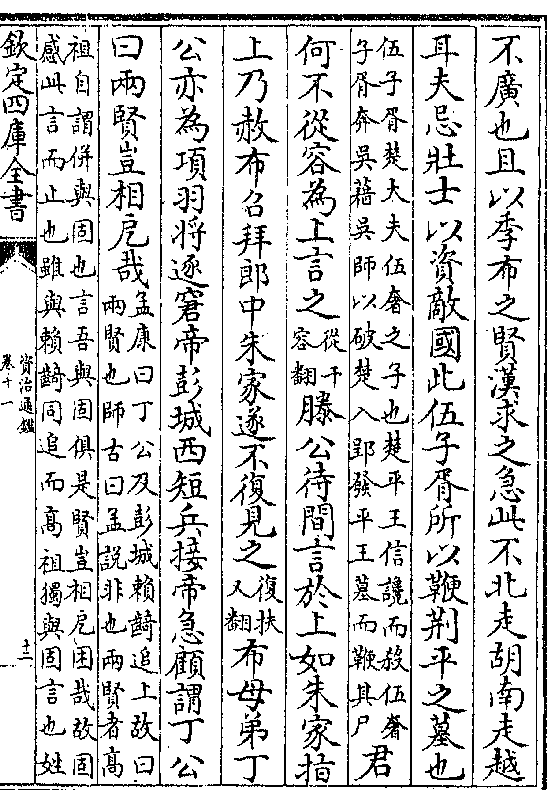 不廣也且以季布之賢漢求之急此不北走胡南走越
耳夫忌壯士以資敵國此伍子胥所以鞭荆平之墓也
伍子胥楚大夫伍奢之子也楚平王信讒而殺伍奢
子胥奔吳藉吳師以破楚入郢發平王墓而鞭其尸
君
何不從容為上言之
從千
容翻
滕公待間言於上如朱家指
上乃赦布召拜郎中朱家遂不復見之
復扶
又翻
布母弟丁
公亦為項羽将逐窘帝彭城西短兵接帝急顧謂丁公
曰兩賢豈相戹哉
孟康曰丁公及彭城賴齮追上故曰
兩賢也師古曰孟說非也兩賢者高
祖自謂併與固也言吾與固俱是賢豈相戹困哉故固
感此言而止也雖與賴齮同追而高祖獨與固言也姓
欽定四庫全書
資治通鑑
卷十一
十二